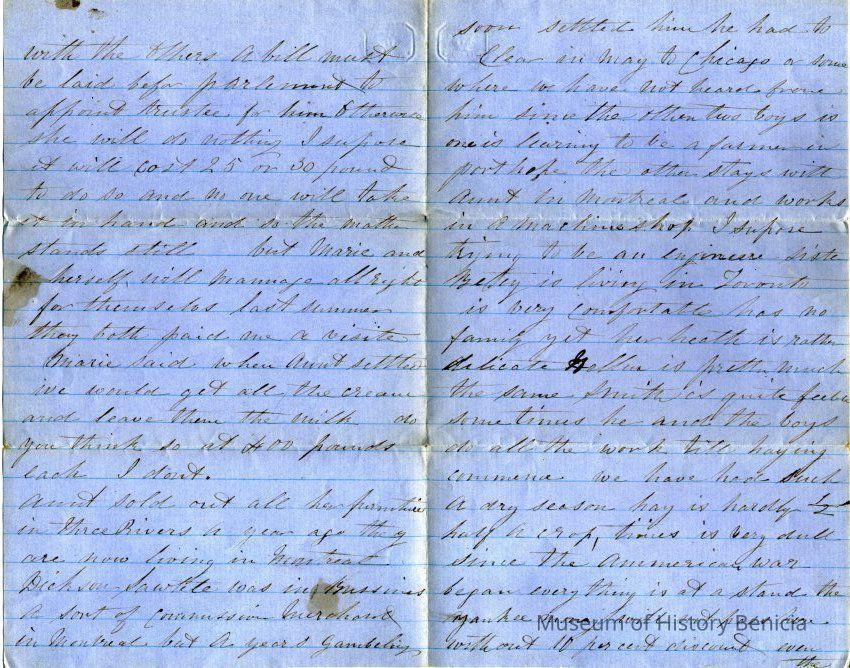 with the others A bill must
be laid befor parlement to
appoint trustee for him otherwise
she will do nothing I supose
it will cost 25 or 30 pound
to do so and no one will take
it in hand and so the matter
stands still but Marie and
herself will mannage all right
for themselvs last summer
they both paid me a visite
Marie said when Aunt settled
we would get all the cream
and leave them the milk do
you think so at 400 pounds
each I dont.
Aunt sold out all her furniture
in Three Rivers a year ago they
are now living in Montreal
Dickson Sawtele was in Bussines
a sort of Commission Merchant
in Montreal but A years gambeling
soon settled him he had to
Clear in May to Chicago or some
where we have not heard from
him since the other two boys is
one is learing to be a farmer in
porthope the other stays with
Aunt in Montreal and works
in a machine shop I supose
trying to be an enginere Siste
Betsy is living in Toronto
is very comfortable has no
family yet her heath is rather
delicate Nellie is pretty much
the same Smith is quite feeble
some times he and the boys
do all the work till haying
commence we have had such
A dry season hay is hardly 1/2
half a crop, times is very dull
since the Ammerican war
began everything is at a stand the
yankee money will not pass here
without 10 per cent discount even
the
Museum of History Benicia